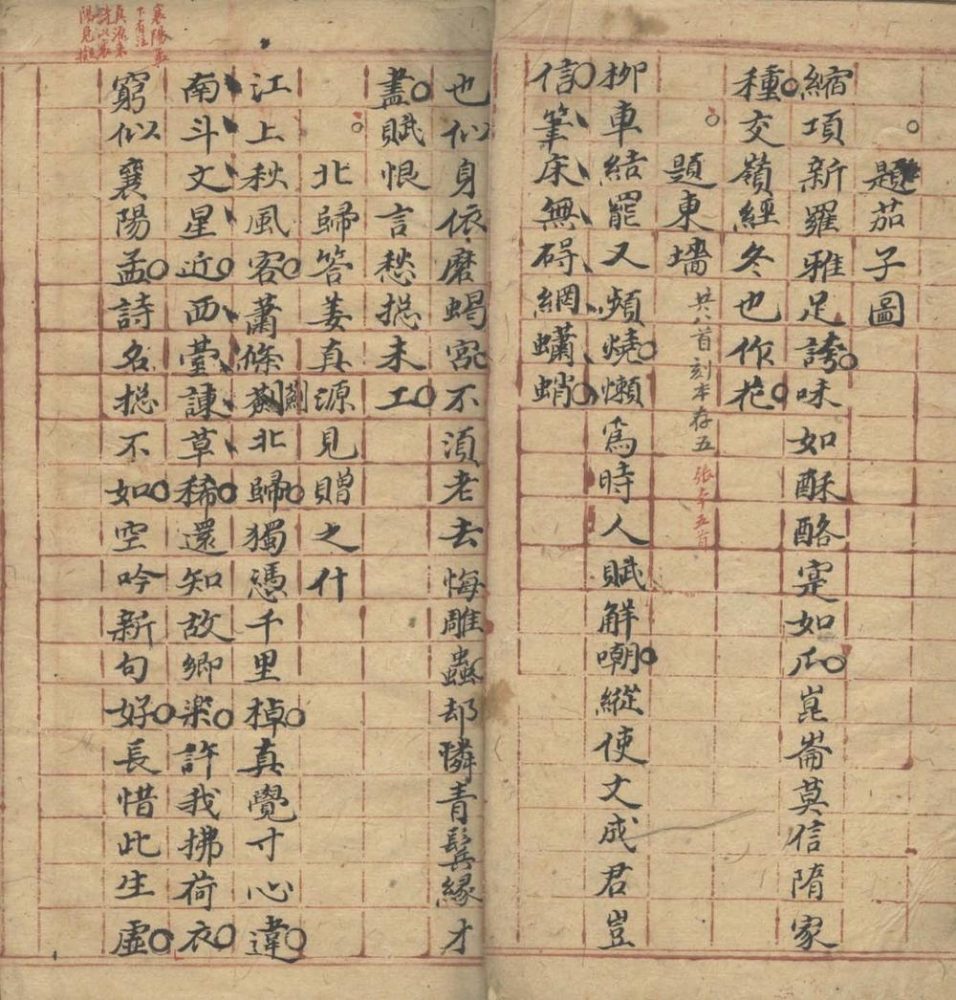 題茄子圖
縮項新羅雅足誇味如酥酪寔如瓜崑崙莫信隋家
種交嶺經冬也作花
題東墻
共八首刻本存五
張本五首
柳車結罷又頻燒懶爲時人賦解嘲縱使文成君豈
信筆床無碍網蠨蛸
也似身依磨蝎宮不須老去悔雕蟲却憐青鬢緣才
盡賦恨言愁摠未工
北歸答姜真源見贈之什
江上秋風客蕭條薊北歸獨憑千里棹真覺寸心違
薊
南斗文星近西臺諫草稀還知故鄉樂許我拂荷衣
窮似襄陽孟詩名摠不如空吟新句好長惜此生虛
襄陽孟
下有注
真源來
詩以襄
陽見擬